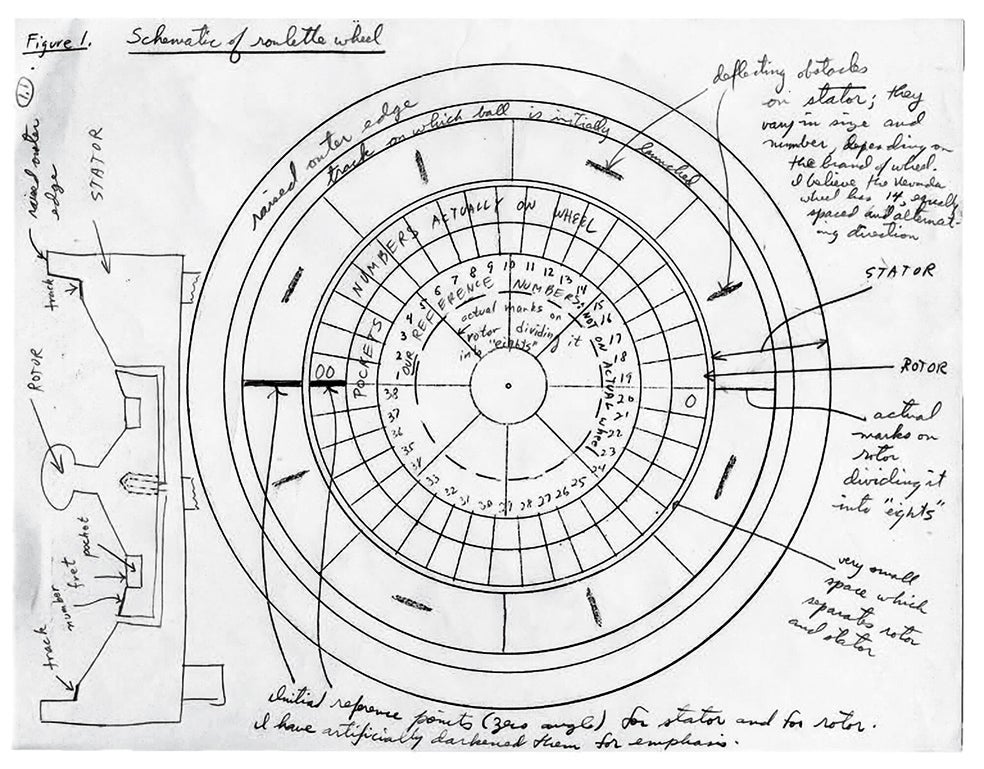 Figure 1. Schematic of roulette wheel
1.1
raised outer
edge
STATOR
track
ROTOR
pocket
fret
number
track
raised outer edge
track on which ball is initially launched
NUMBERS ACTUALLY ON WHEEL
POCKETS
OUR REFERENCE NUMBERS; NOT ON ACTUAL wheel
1 2 3 4 5 6 7 8 9 10 11 12 13 14 15 16 17 18 19 20 21 22 23 24 25 26 27 28 29 30 31 32 33 34 35 36 37 38
actual marks on
rotor dividing it
into "eights"
00
0
deflecting obstacles
on stator; they
vary in size and
number, depending on
the brand of wheel.
I believe the Nevada
wheel has 14, equally
spaced and alternat-
ing direction
STATOR
ROTOR
actual
marks on
rotor
dividing it
into "eights"
very small
space which
separates rotor
and stator
Initial reference points (zero angle) for stator and for rotor.
I have artificially darkened them for emphasis.